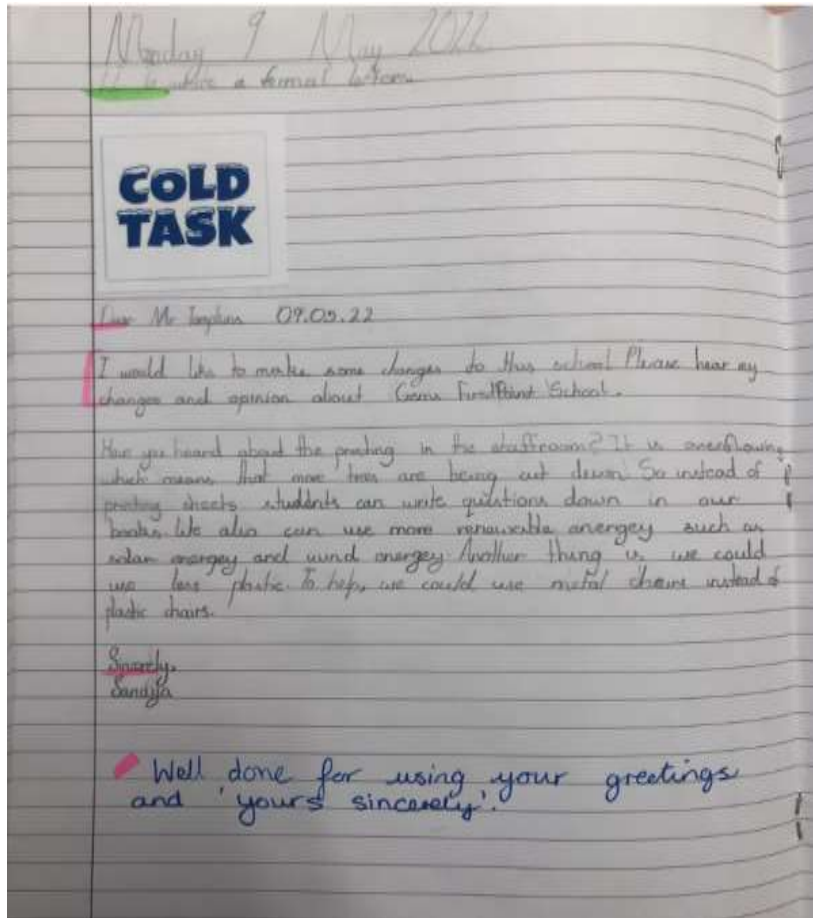 Monday 9 May 2022
to write a formal letter.
COLD
TASK
Dear Mr 09.05.22
I would like to make some changes to this school Please hear my
changes and opinion about Gems FirstPoint School.
Have you heard about the printing in the staffroom? It is overflowing
which means that more trees are being cut down. So instead of
printing sheets students can write quistions down in our
books. We also can use more renuwable anergey such as
solar anergey and wind anergey Another thing is we could
use less plastic. To help, we could use metal chairs instead of
plastic chairs.
Sincerely,
Well done for using your greetings
and 'yours sincerely'.